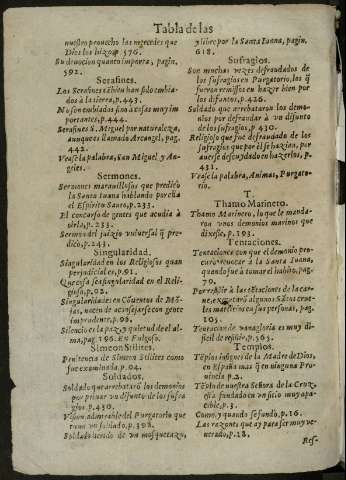 Tabla de las
nuestro prouecho las mercedes que
Dios les hizo, p. 576.
Su deuocion quanto importa, pagin.
592.
Serafines.
Los Serafines tābien han sido embia-
dos a la tierra, p. 443.
No son embiados sino a cosas muy im
portantes, p. 444.
Serafines S. Miguel por naturaleza,
aunque es llamado Arcangel, pag.
442.
Vease la palabra, San Miguel y An-
geles.
Sermones.
Sermones marauillosos que predicò
la Santa Iuana hablando por ella
el Espiritu Santo, p. 233.
El concurso de gentes que acudia à
oirla, p. 233.
Sermon del juizio vniuersal q̃ pre-
dicò, p. 243.
Singularidad.
Singularidad en los Religiosos quan
perjudicial es, p. 91.
Que cosa sea singularidad en el Reli-
gioso, p. 92.
Singularidades en Cōuentos de Mō-
jas, nacen de aconsejarse con gente
imprudente, p. 98.
Silencio es la paz y quietud de el al-
ma, pag. 196. En Fulgoso.
Simeon Stilites.
Penitencia de Simeon Stilites como
fue examinada, p. 04.
Soldados.
Soldado que arrebataron los demonios
por priuar vn difunto de los sufra
gios, p. 430.
Vision admirable del Purgatorio que
tuuo vn soldado, p. 398.
Soldado herido de vn mosquetazo,
y libre por la Santa Iuana, pagin.
618.
Sufragios.
Son muchas vezes defraudados de
los sufragios en Purgatorio, los q̃
fueron remissos en hazer bien por
los difuntos, p. 426.
Soldado que arrebataron los demo-
nios por defraudar à vn difunto
de los sufragios, p. 430.
Religioso que fue defraudado de los
sufragios que por èl se hazian, por
auerse descuydado en hazerlos, p.
431.
Vease la palabra, Animas, Purgato-
rio.
T.
Thamo Marinero.
Thamo Marinero, lo que le manda-
ron vnos demonios marinos que
dixesse, p. 193.
Tentaciones.
Tentaciones con que el demonio pro-
curò trocar a la Santa Iuana,
quando fue à tomar el habito, pag.
79.
las tētaciones de la car-
ne, algunos Sātos crue-
les martirios en sus personas, pag.
105.
Tentacion de vanagloria es muy di-
ficil de resistir, p. 563.
Templos.
Tēplos insignes de la Madre de Dios,
en España mas q̃ en ninguna Pro-
uincia p. 2.
Tēplo de nuestra Señora de la Cruz,
està fundado en sitio muy apa-
cible, p. 3.
Como, y quando se fundò, p. 16.
Las razones que ay para ser muy ve-
nerado, p. 18.
Res-